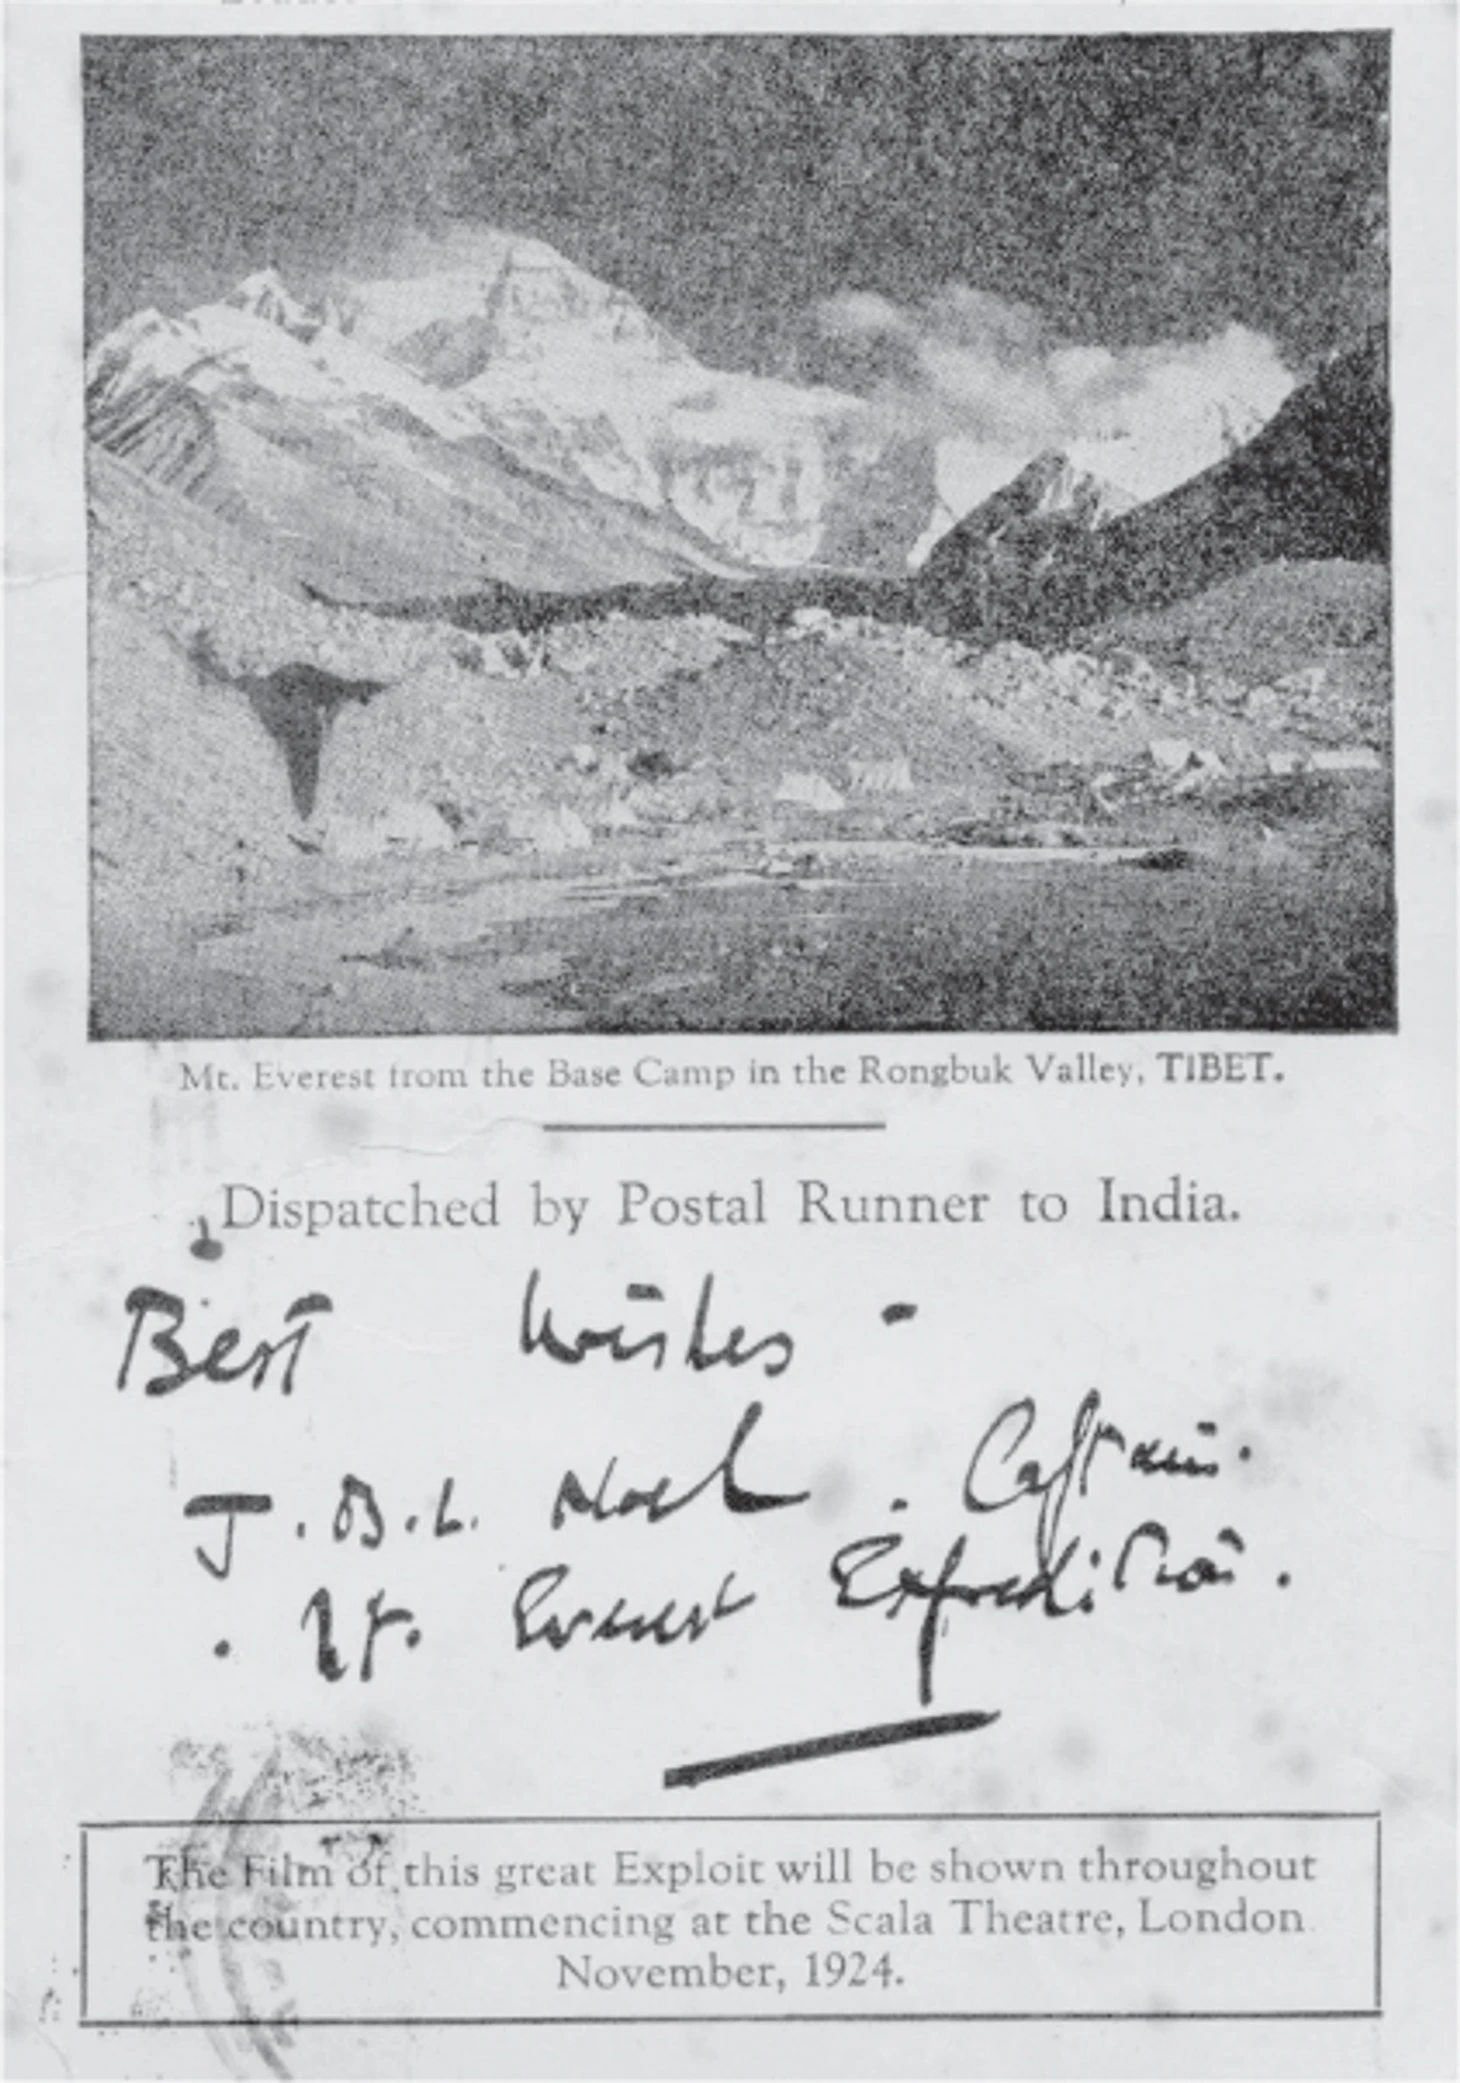 Mt. Everest from the Base Camp in the Rongbuk Valley, TIBET.
Dispatched by Postal Runner to India.
Best Wishes -
J. B. L. Noel. Captain.
. Mt. Everest Expedition.
The Film of this great Exploit will be shown throughout
the country, commencing at the Scala Theatre, London
November, 1924.